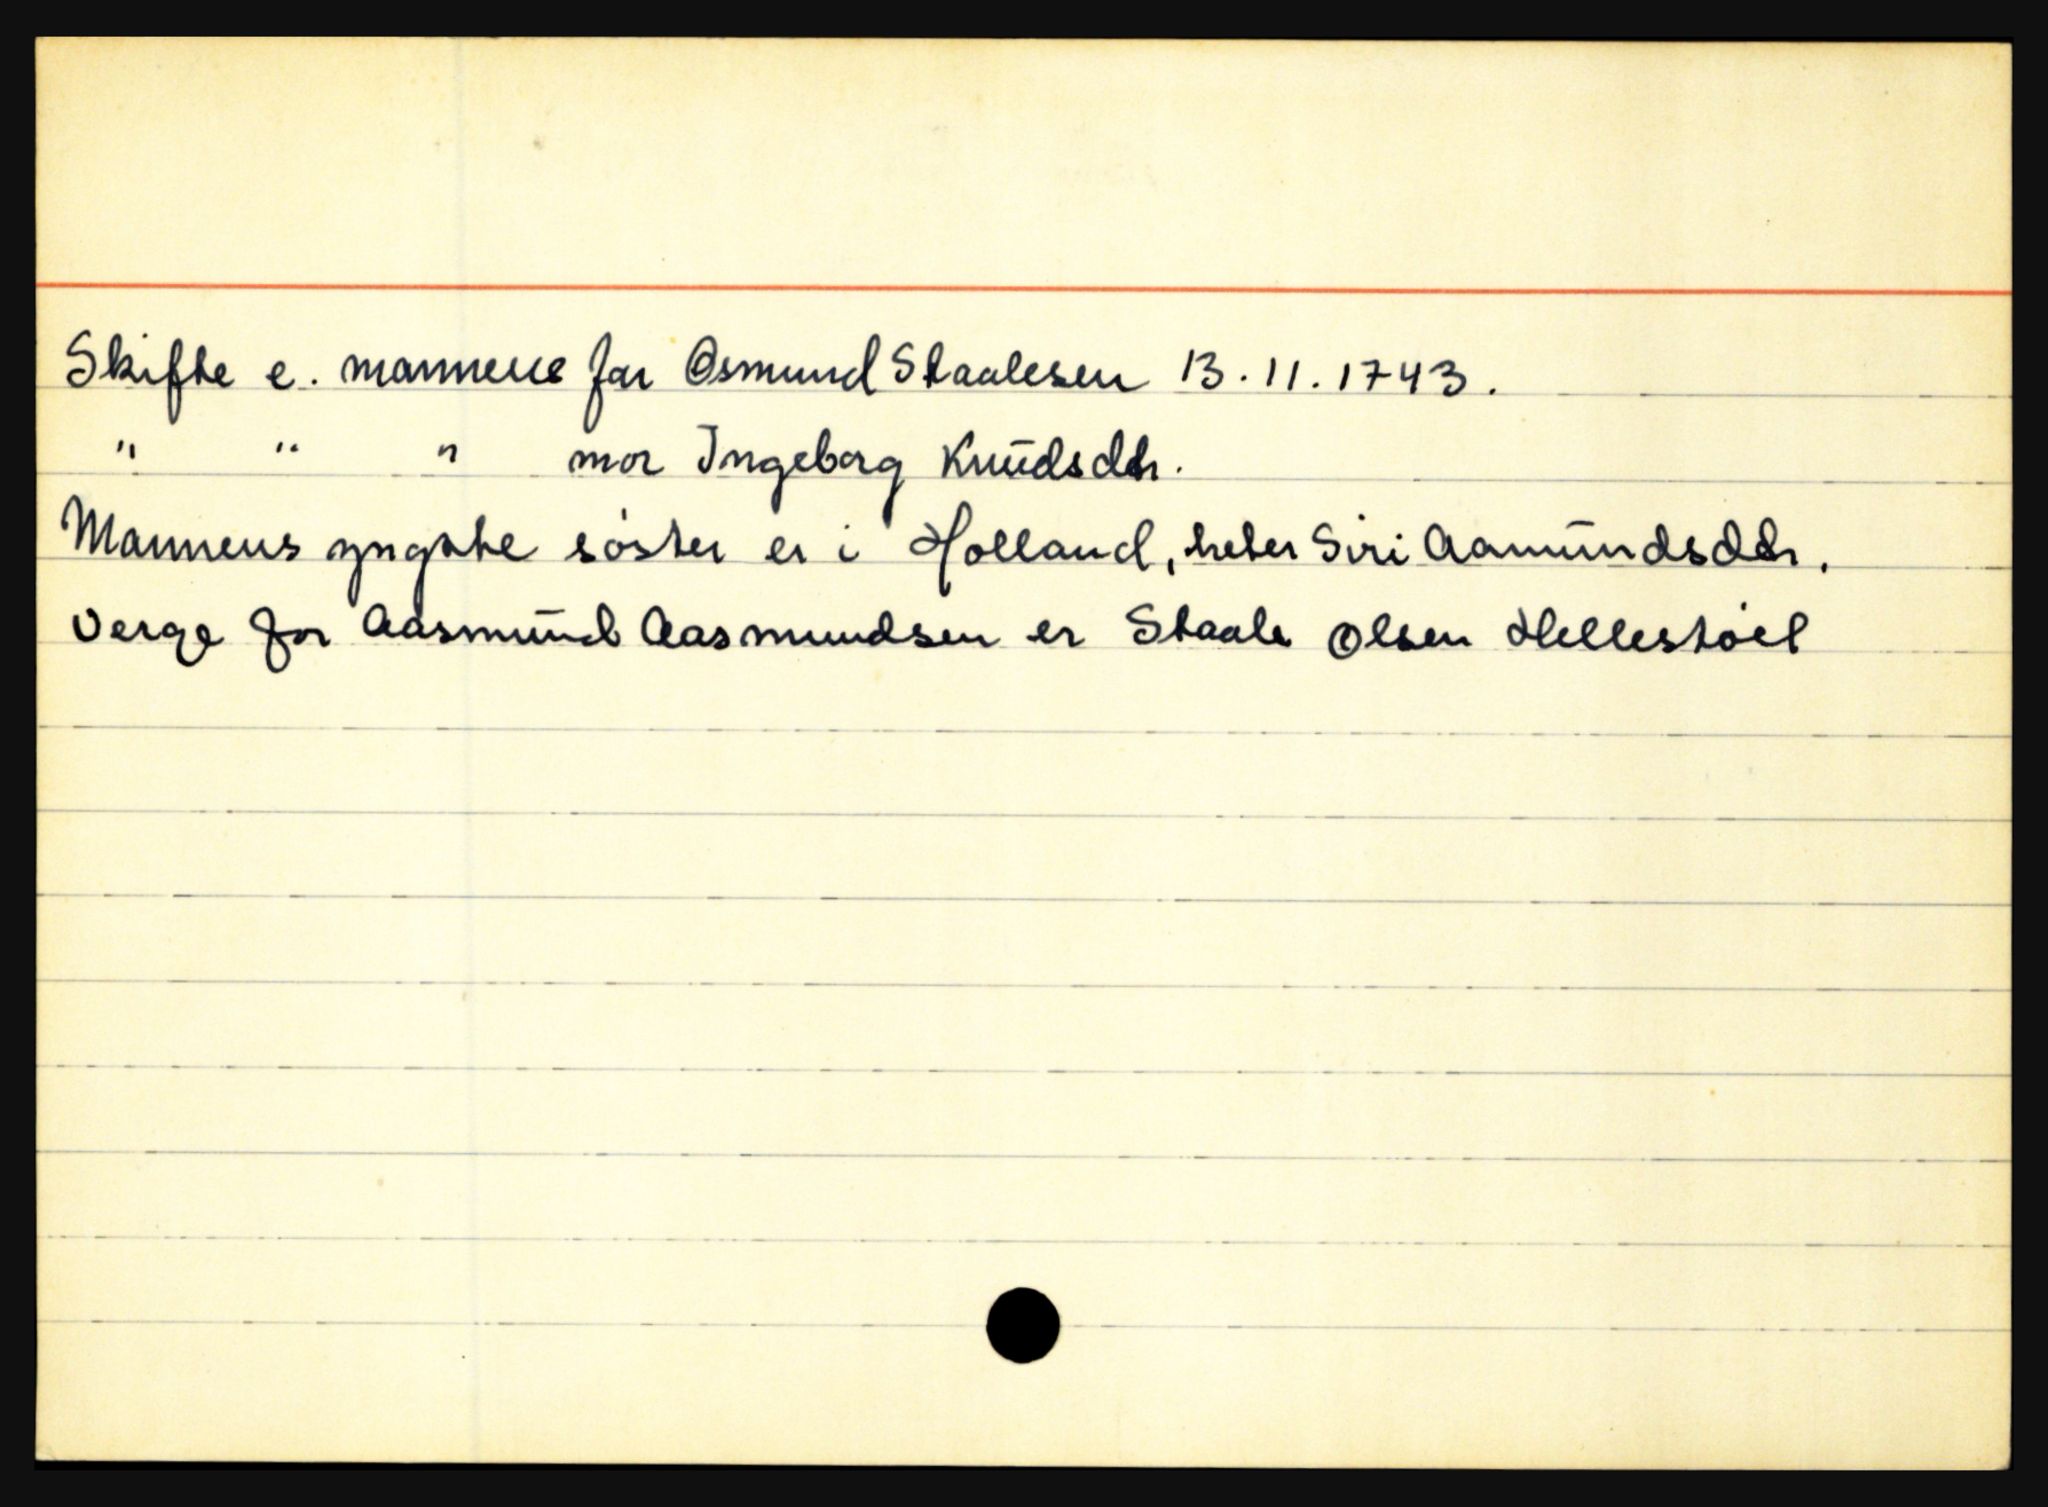 Skifte e. mannens far Osmund Staalesen 13.11.1743.
" " " mor Ingeborg Knūdsdtr.
Mannens yngste söster er i Holland, heter Siri Aamūndsdtr.
Verge for Aasmūnd Aasmundsen er Staale Olsen Hellestöel